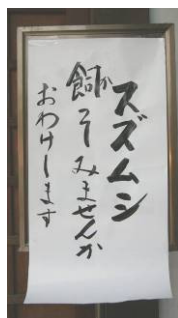 スズムシ
飼かってみませんか
おわけします